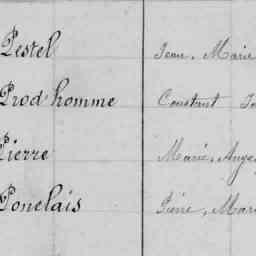 Pestel Jean, Marie
Prod'homme Constant
Pierre Marie, Ange
Ponelais Pierre, Mari